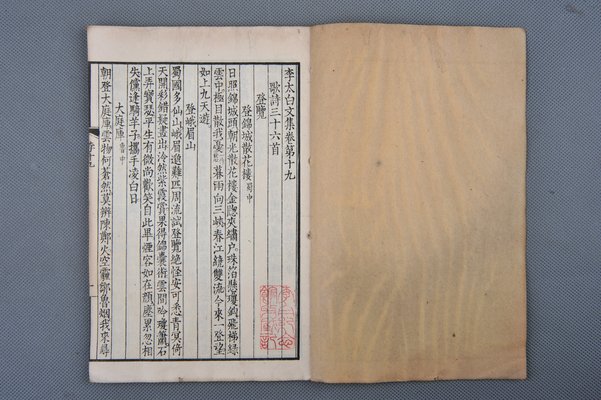 李太白文集卷第十九
歌詩三十六首
登覽
登錦城散花樓 蜀中
日照錦城頭朝光散花樓金牕夾繡户珠箔懸瓊鉤飛梯緑
雲中極目散我憂暮雨向三峽春江繞雙流今來一登望
如上九天遊
登峨眉山
蜀國多仙山峨眉邈難匹周流試登覽絶怪安可悉青冥倚
天開彩錯疑畫出泠然紫霞賞果得錦囊術雲間吟瓊簫石
上弄寳瑟平生有微尚歡笑自此畢煙容如在顔塵累忽相
失儻逢騎羊子攜手凌白日
大庭庫 魯中
朝登大庭庫雲物何蒼然莫辨陳鄭火空霾鄒魯烟我來尋
十九
一